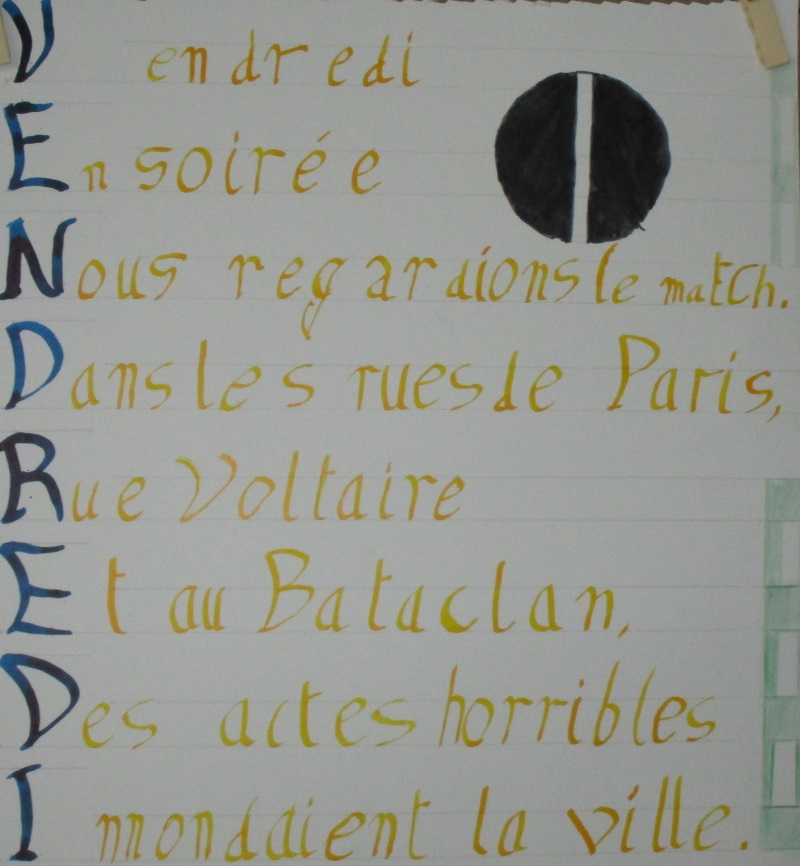 Vendredi
En soirée
Nous regardions le match.
Dans les rues de Paris,
Rue Voltaire
Et au Bataclan,
Des actes horribles
Innondaient la ville.